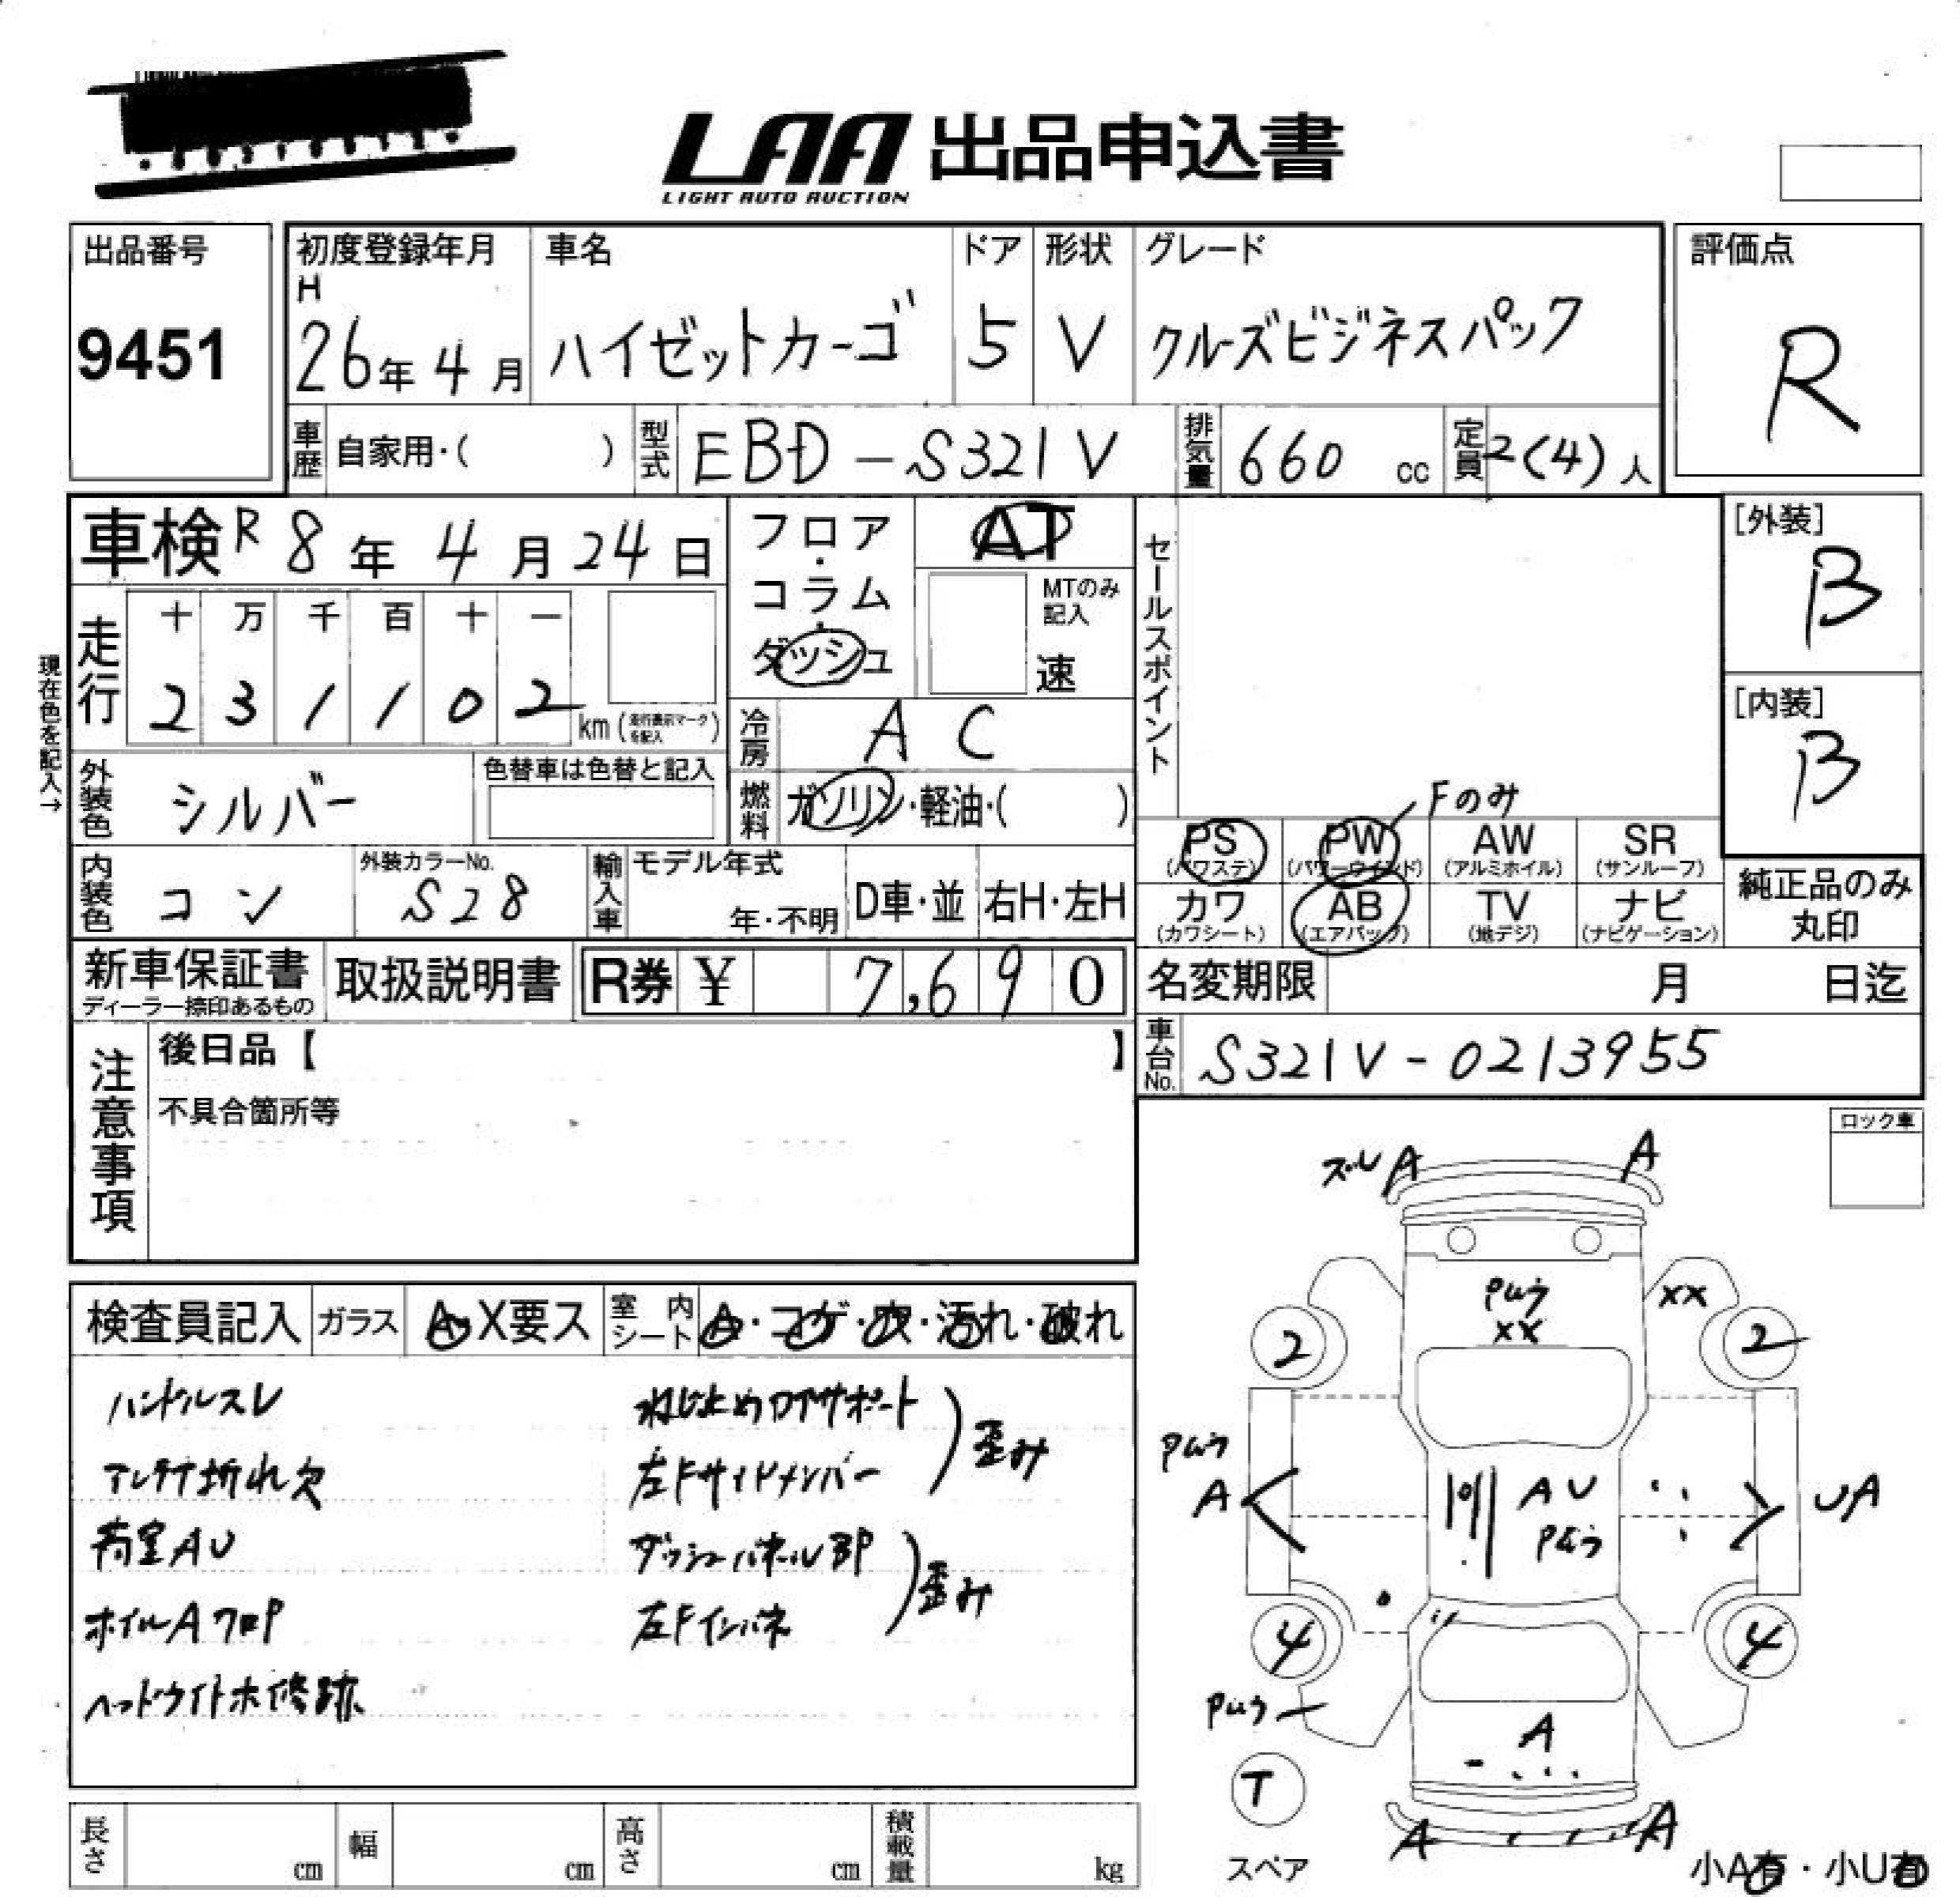 LAA 出品申込書
LIGHT AUTO AUCTION
出品番号
9451
初度登録年月
H
26年4月
車名
ハイゼットカーゴ
ドア
5
形状
V
グレード
クルーズビジネスパック
評価点
R
車歴 自家用・( )
型式 EBD-S321V
排気量 660 cc
定員 2(4)人
車検 R8年4月24日
フロア・コラム・ダッシュ
AT
MTのみ記入
速
セールスポイント
[外装]
B
[内装]
B
現在色を記入→
走行
十 万 千 百 十 一
2 3 1 1 0 2 km (走行表示マークを記入)
冷房 AC
外装色 シルバー
色替車は色替と記入
燃料 ガソリン・軽油・( )
Fのみ
PS (パワステ)
PW (パワーウインド)
AW (アルミホイル)
SR (サンルーフ)
カワ (カワシート)
AB (エアバッグ)
TV (地デジ)
ナビ (ナビゲーション)
純正品のみ丸印
内装色 コン
外装カラーNo. S28
輸入車 モデル年式
年・不明
D車・並
右H・左H
新車保証書
ディーラー捺印あるもの
取扱説明書
R券 ¥ 7,690
名変期限 月 日迄
車台No. S321V-0213955
注意事項
後日品【 】
不具合箇所等
ロック車
検査員記入
ガラス A・X要ス
室内シート A・コゲ・穴・汚れ・破れ
ハンドルスレ
アンテナ折れ欠
荷室AU
ホイルAフロP
ヘッドライトホ修跡
ねじ止めコアサポート
左Fサイドメンバー
歪み
ダッシュパネルBP
左Fインパネ
歪み
ズレ A
A
Pムラ
XX
XX
2
2
Pムラ
A
AU
Pムラ
UA
4
4
Pムラ
A
T
スペア
A
A
小A有・小U有
長さ cm
幅 cm
高さ cm
積載量 kg